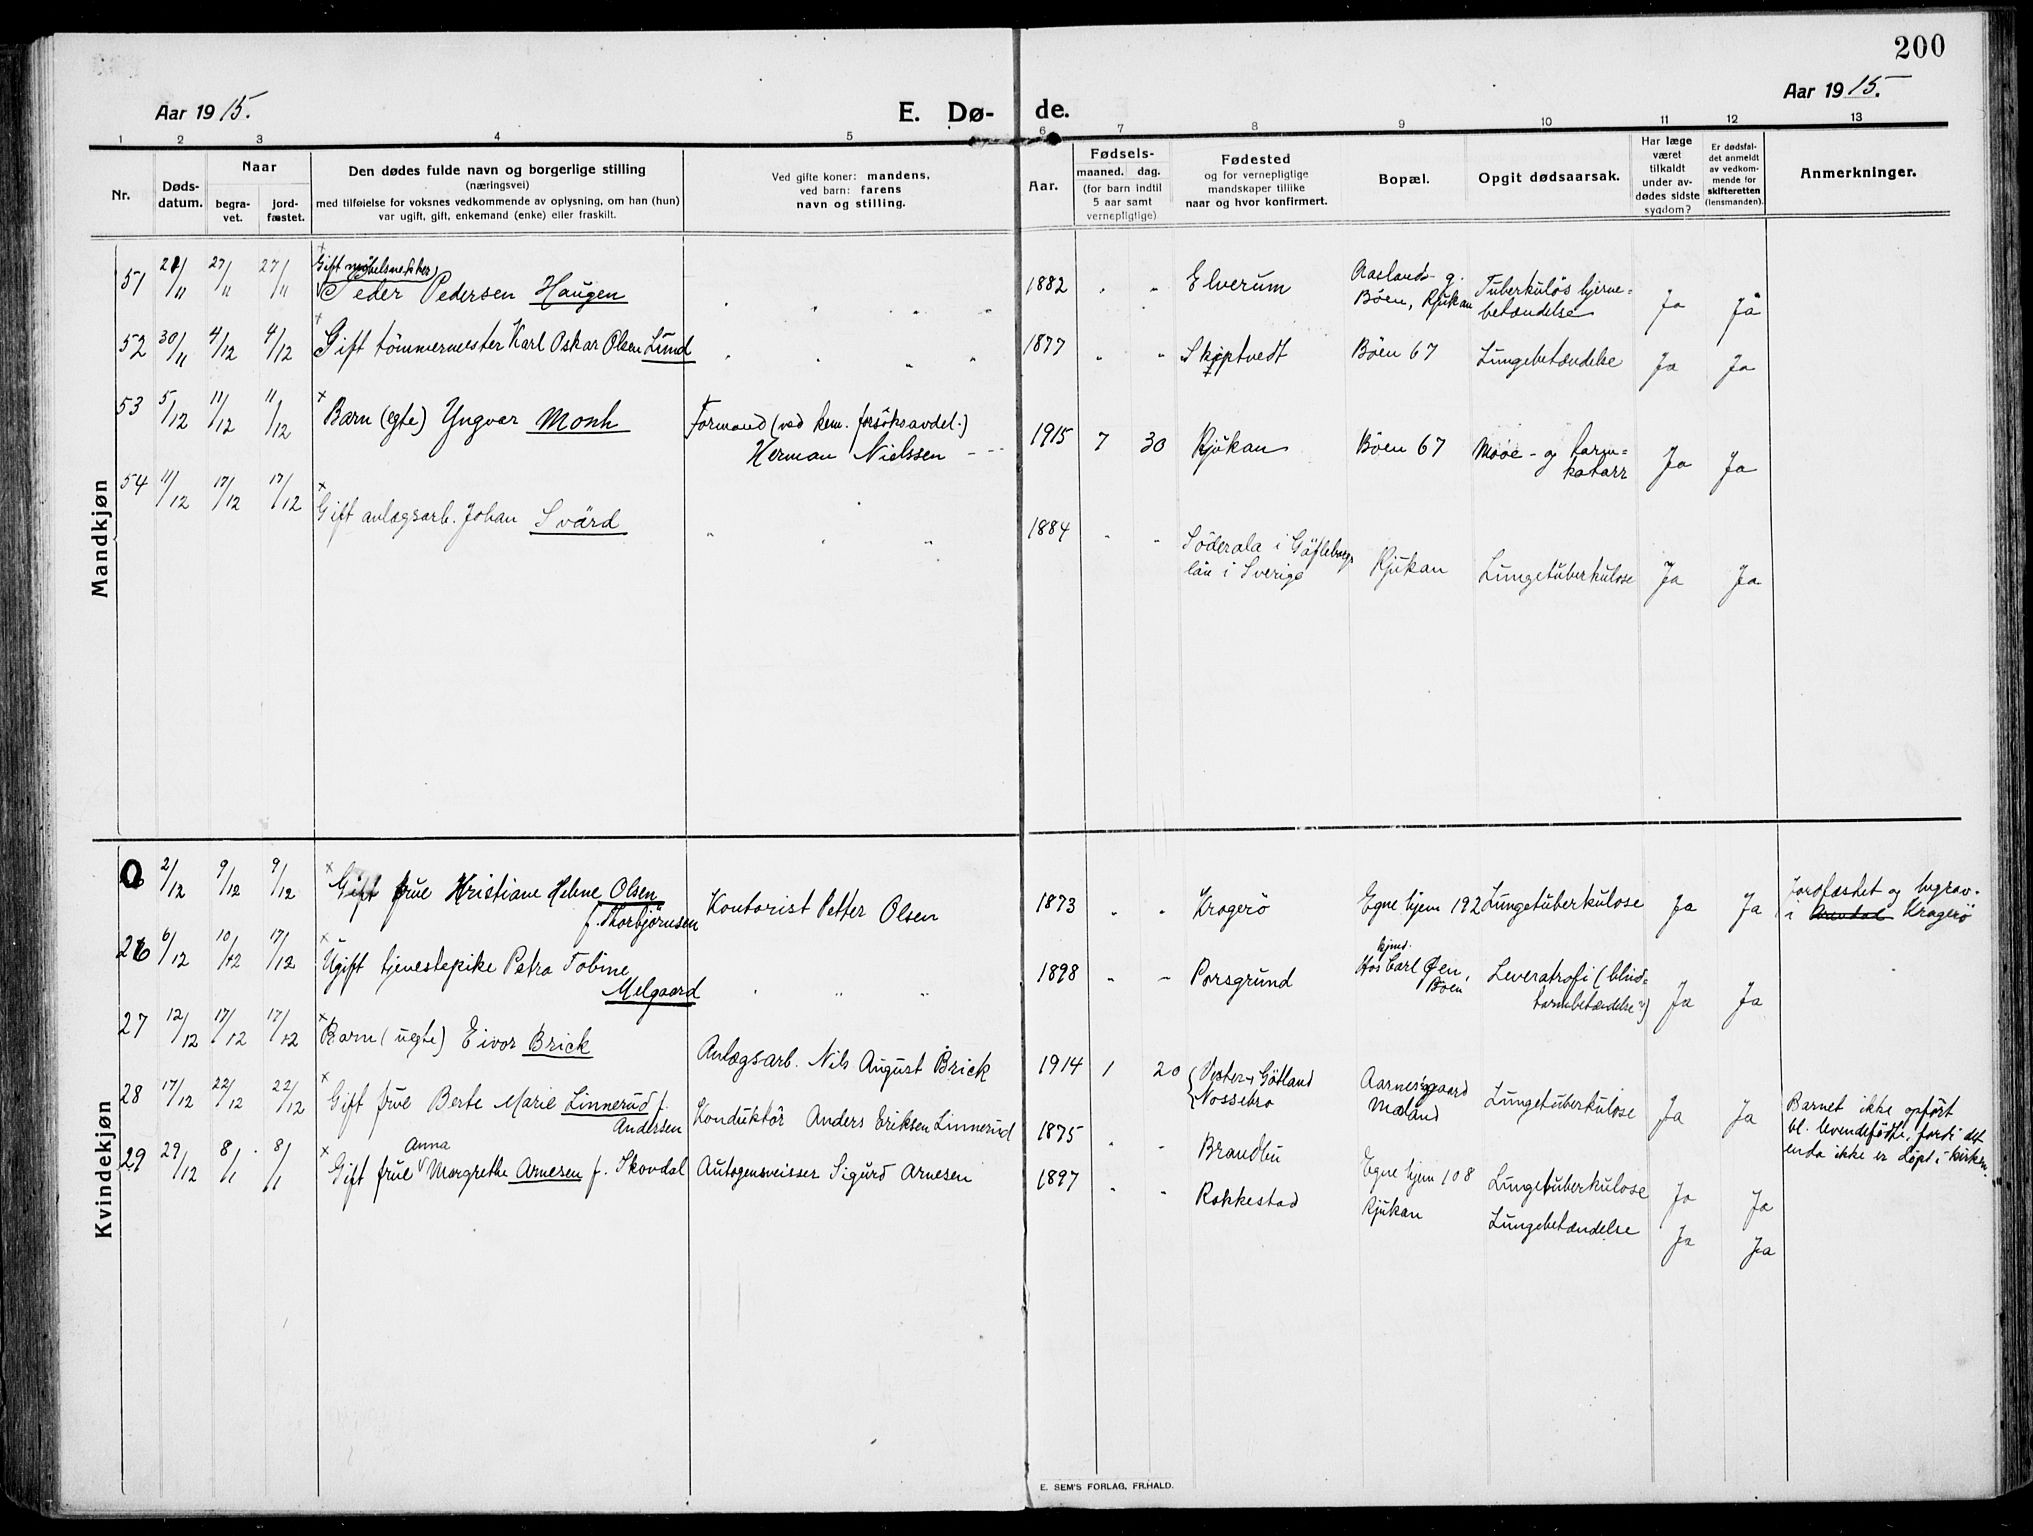 200
Aar 1915.
E. Dø-
de.
Aar 1915.
1 2 3 4 5 6 7 8 9 10 11 12 13
Nr.
Døds-
datum.
Naar
begra-
vet.
jord-
fæstet.
Den dødes fulde navn og borgerlige stilling
(næringsvei)
med tilføielse for voksnes vedkommende av oplysning, om han (hun)
var ugift, gift, enkemand (enke) eller fraskilt.
Ved gifte koner: mandens,
ved barn: farens
navn og stilling.
Aar.
Fødsels-
maaned. dag.
(for barn indtil
5 aar samt
vernepligtige)
Fødested
og for vernepligtige
mandskaper tillike
naar og hvor konfirmert.
Bopæl.
Opgit dødsaarsak.
Har læge
været
tilkaldt
under av-
dødes sidste
sygdom?
Er dødsfal-
det anmeldt
av vedkom-
mende for
skifteretten
(lensmanden).
Anmerkninger.
Mandkjøn
51 21/11 27/11 27/11 Gift møbelsnekker
Peder Pedersen Haugen " " " " 1882 " " Elverum Aaslands- g. Bøen, Rjukan Tuberkuløs hjerne=
betændelse Ja Ja
52 30/11 4/12 4/12 Gift tömmermester Karl Oskar Olsen Lund " " " " 1877 " " Skiptvedt Böen 67 Lungebetændelse Ja Ja
53 5/12 11/12 11/12 Barn (egte) Yngvar Monh Formand (ved kem. forsöksavdel.)
Herman Nielssen - - - 1915 7 30 Rjukan Böen 67 Mave- og tarm=
katarr Ja Ja
54 11/12 17/12 17/12 Gift anlægsarb. Johan Svärd " " " 1884 " " Söderala i Gäfleborgs
län i Sverige Rjukan Lungetuberkulose Ja Ja
Kvindekjøn
2/12 9/12 9/12 Gift frue Kristiane Helene Olsen
f. Thorbjørnsen Kontorist Petter Olsen 1873 " " Kragerö Egne hjem 192 Lungetuberkulose Ja Ja Jordfæstet og begrav.
i Kragerö
26 6/12 10/12 17/12 Ugift tjenestepike Petra Tobine
Melgaard " " " 1898 " " Porsgrund Hos Carl Øen,
Böen Leveratrofi (blind=
tarmbetændelse?) Ja Ja
27 12/12 17/12 17/12 Barn (uegte) Eivor Brick Anlægsarb. Nils August Brick 1914 1 20 Vester-Götland
Nossebro Aarnesgaard
Mæland Lungetuberkulose Ja Ja Barnet ikke opfört
bl. levendefödte, fordi det
enda ikke er döpt i kirken.
28 17/12 22/12 22/12 Gift frue Berte Marie Linnerud f.
Andersen Konduktör Anders Eriksen Linnerud 1875 " " Brandbu Egne hjem 108 Lungetuberkulose Ja Ja
29 29/12 8/1 8/1 Gift frue Anna Margrethe Arnesen f. Skovdal Autogensveisser Sigurd Arnesen 1897 " " Rakkestad Rjukan Lungebetændelse Ja Ja
E. SEM'S FORLAG, FR.HALD.